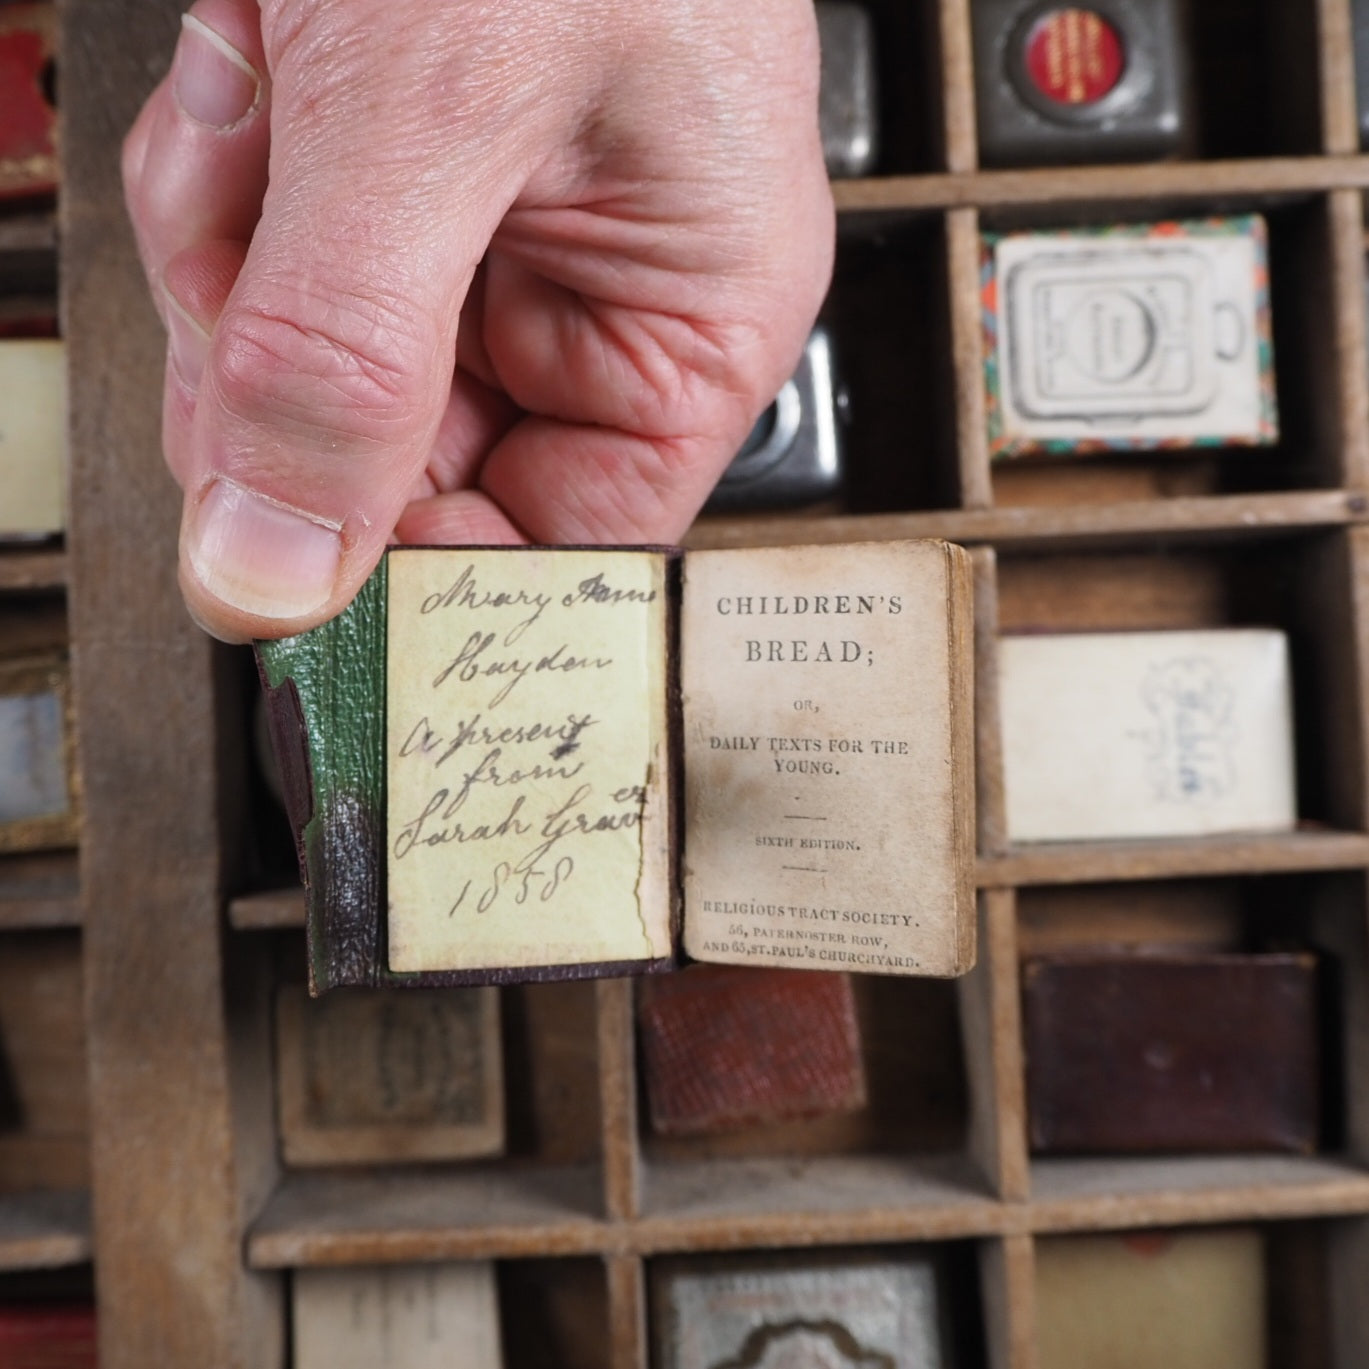 Mary Anne
Hayden
A present
from
Sarah Graves
1858
CHILDREN'S
BREAD;
OR,
DAILY TEXTS FOR THE
YOUNG.
SIXTH EDITION.
RELIGIOUS TRACT SOCIETY.
56, PATERNOSTER ROW,
AND 65, ST. PAUL'S CHURCHYARD.